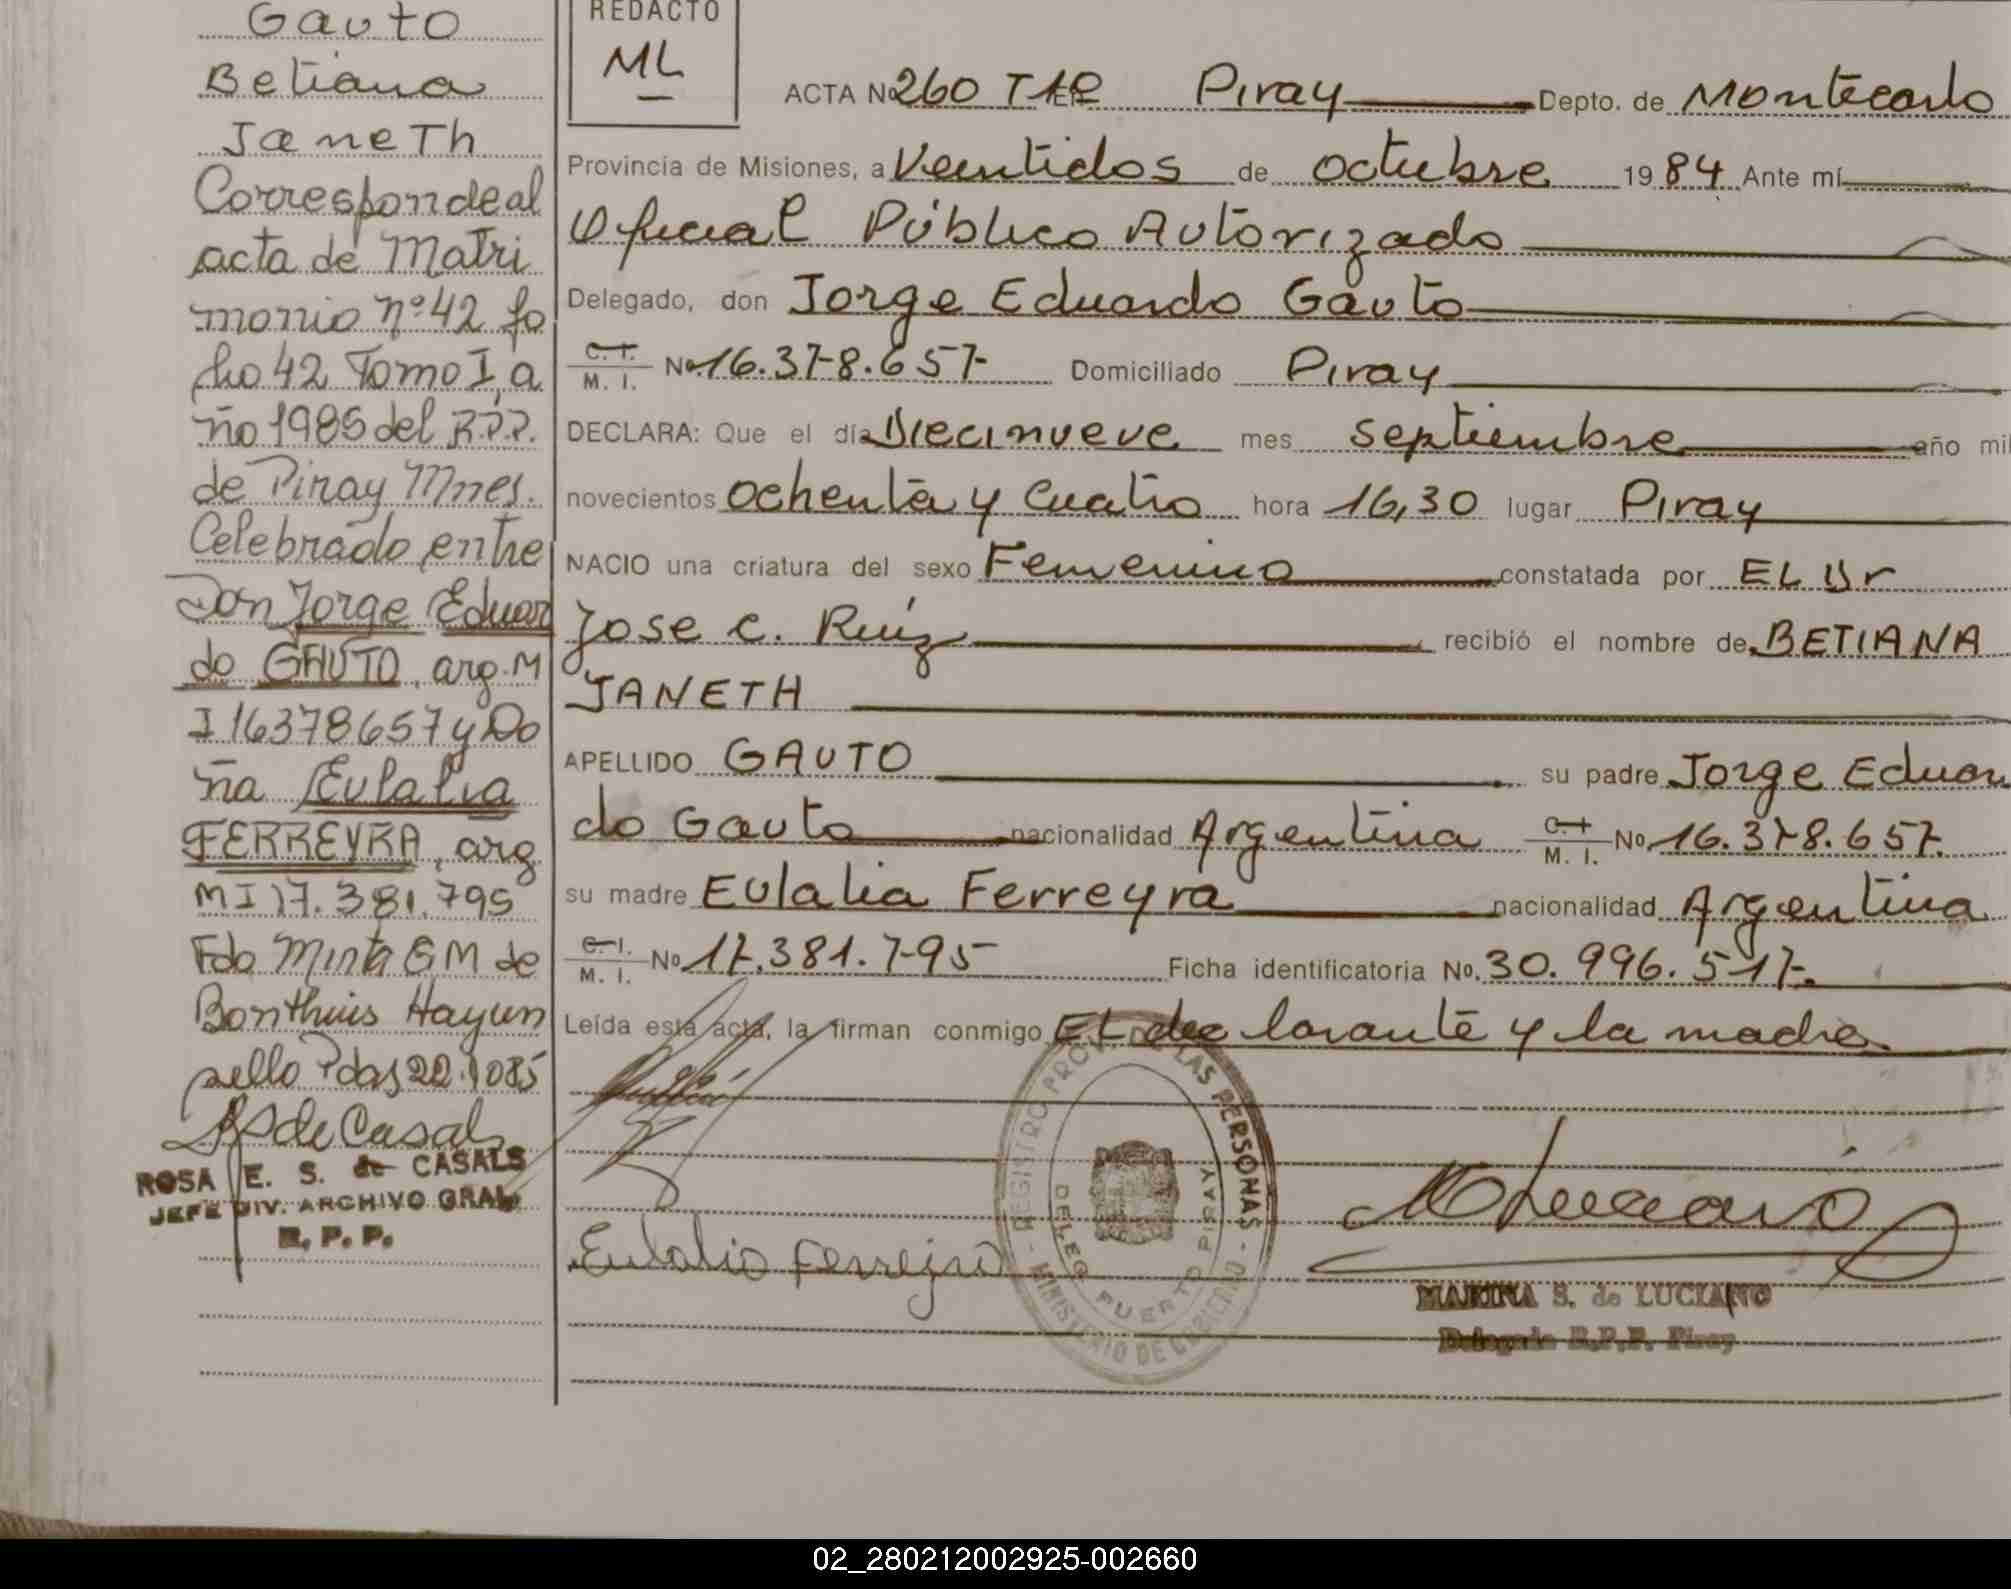 Gauto
Betiana
Janeth
Corresponde al
acta de Matri
monio nº 42 fo
lio 42 Tomo I, a
ño 1985 del R.P.P.
de Piray Mnes.
Celebrado entre
Don Jorge Eduar
do GAUTO, arg. M
I 16378657 y Do
ña Eulalia
FERREYRA, arg
MI 17.381.795
Fdo Mirta G M de
Bonthuis Hay un
sello Pdas 22.10 85
de Casals
ROSA E. S. de CASALS
JEFE DIV. ARCHIVO GRAL
R. P. P.
REDACTO
ML
ACTA Nº 260 TER Piray Depto. de Montecarlo
Provincia de Misiones, a Veintidos de octubre 1984 Ante mí
Oficial Público Autorizado
Delegado, don Jorge Eduardo Gauto
C. I. M. I. Nº 16.378.657 Domiciliado Piray
DECLARA: Que el día Diecinueve mes septiembre año mil
novecientos ochenta y cuatro hora 16,30 lugar Piray
NACIO una criatura del sexo Femenino constatada por EL Dr
Jose C. Ruíz recibió el nombre de BETIANA
JANETH
APELLIDO GAUTO su padre Jorge Eduar
do Gauto nacionalidad Argentina C. I. M. I. Nº 16.378.657.
su madre Eulalia Ferreyra nacionalidad Argentina
C. I. M. I. Nº 17.381.795 Ficha identificatoria Nº. 30.996.517.
Leída esta acta, la firman conmigo EL declarante y la madre.
Eulalia Ferreyra
REGISTRO PROV. DE LAS PERSONAS - MINISTERIO DE GOBIERNO -
DELEG. PUERTO PIRAY
MARINA S. de LUCIANO
Delegada R.P.P. Piray
02_280212002925-002660